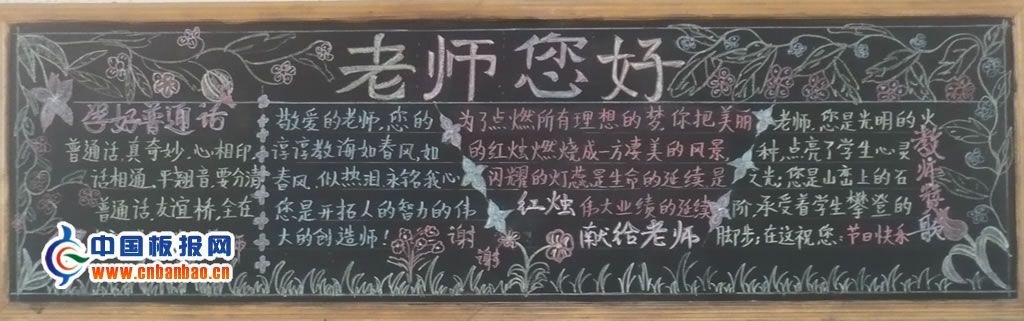 老师您好
学好普通话
普通话,真奇妙,心相印,
话相通,平翘音,要分清
普通话,友谊桥,全在
敬爱的老师,您的
谆谆教诲如春风,如
春风,似热泪永铭我心
您是开拓人的智力的伟
大的创造师!
谢谢
为了点燃所有理想的梦,你把美丽
的红烛燃烧成一方凄美的风景,
闪耀的灯蕊是生命的延续是
红烛 伟大业绩的延续
献给老师
老师,您是光明的火
种,点亮了学生心灵
之光;您是山峦上的石
阶,承受着学生攀登的
脚步;在这祝您:节日快乐
教师赞歌
中国板报网
www.cnbanbao.cn